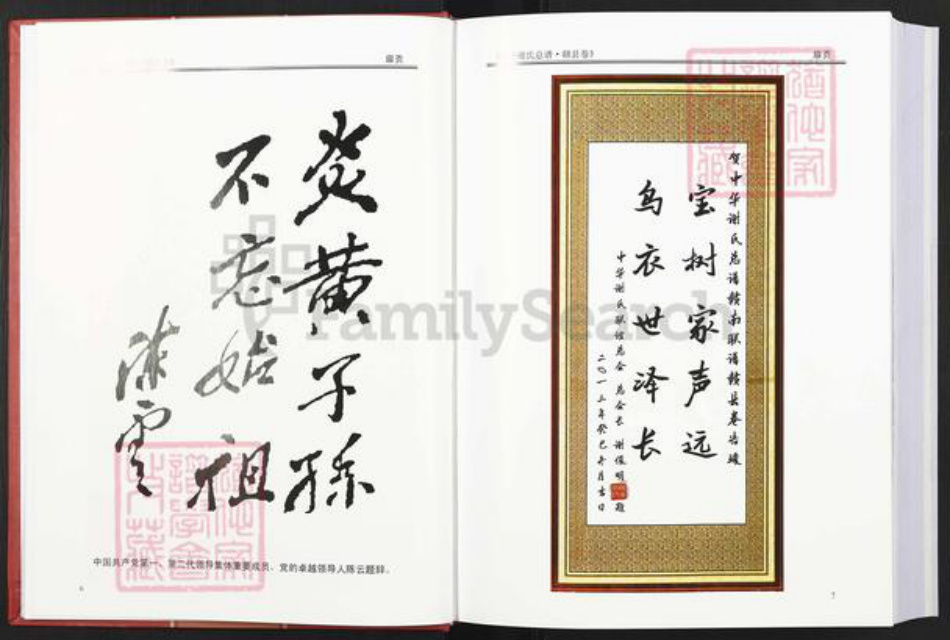 扉页
炎黄子孫
不忘始祖
陳雲
中国共产党第一、第二代领导集体重要成员、党的卓越领导人陈云题辞。
6
氏总谱·赣县卷》
扉页
贺中华谢氏总谱赣南联谱赣县卷告竣
宝树家声远
乌衣世泽长
中华谢氏联谊总会 总会长 谢俊明 题
二〇一三年癸巳
吉日
7
FamilySearch